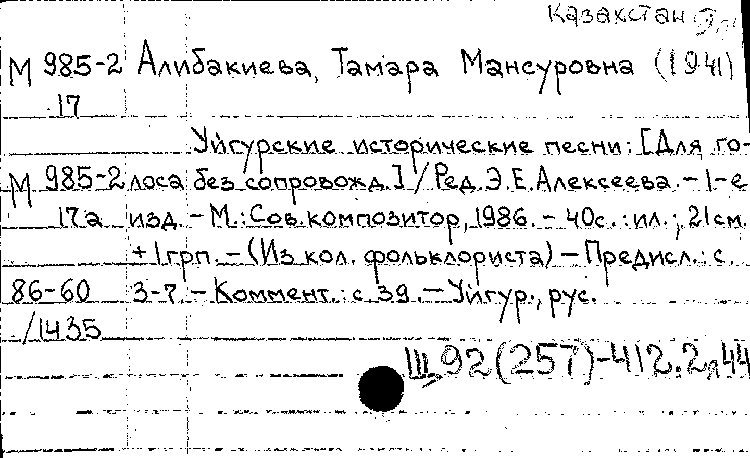 Казахстан
М 985-2 Алибакиева, Тамара Мансуровна (1941)
17
Уйгурские исторические песни: [Для го-
М 985-2 лоса без сопровожд.] / Ред. Э.Е.Алексеева. - 1-е
17а изд. - М.: Сов.композитор, 1986. - 40с.: ил.; 21см.
+ 1грп. - (Из кол. фольклориста) - Предисл.: с.
86-60 3-7. - Коммент.: с 39. - Уйгур., рус.
/1435
III 92(257)-412.2я44